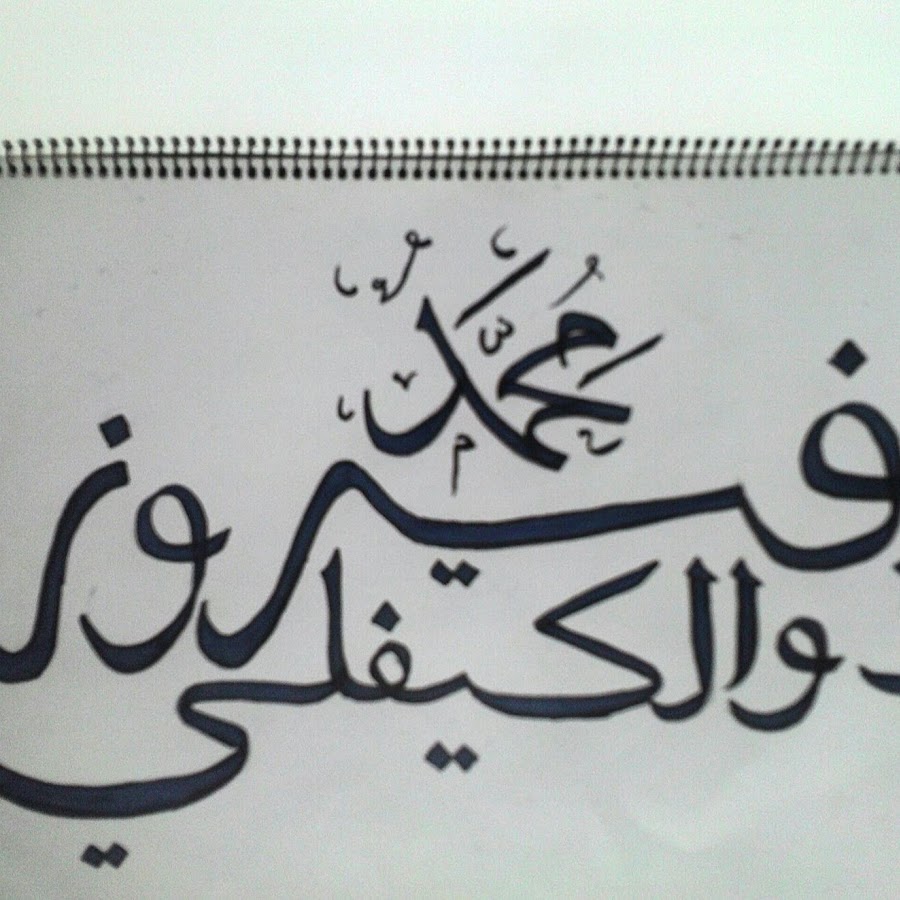 مُحَمَّد
فيروز
ذوالكيفلي